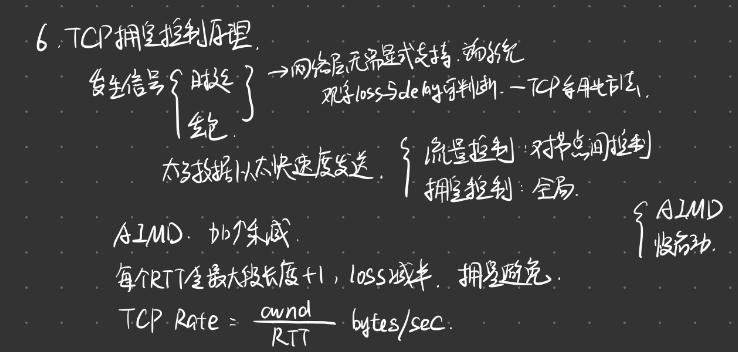 6. TCP拥塞控制原理.
发生信号 { 时延 } → 网络层无需显式支持. 端系统
丢包. 观察loss与delay等判断. — TCP采用此方法.
太多数据以太快速度发送. { 流量控制: 对节点间控制
拥塞控制: 全局.
{ AIMD
慢启动.
AIMD. 加个乘减.
每个RTT 最大段长度+1, loss减半. 拥塞避免.
TCP Rate = cwnd / RTT bytes/sec.